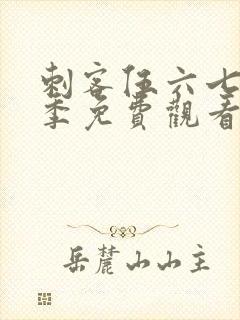 刺客伍六七
季免費觀看
岳麓山山主